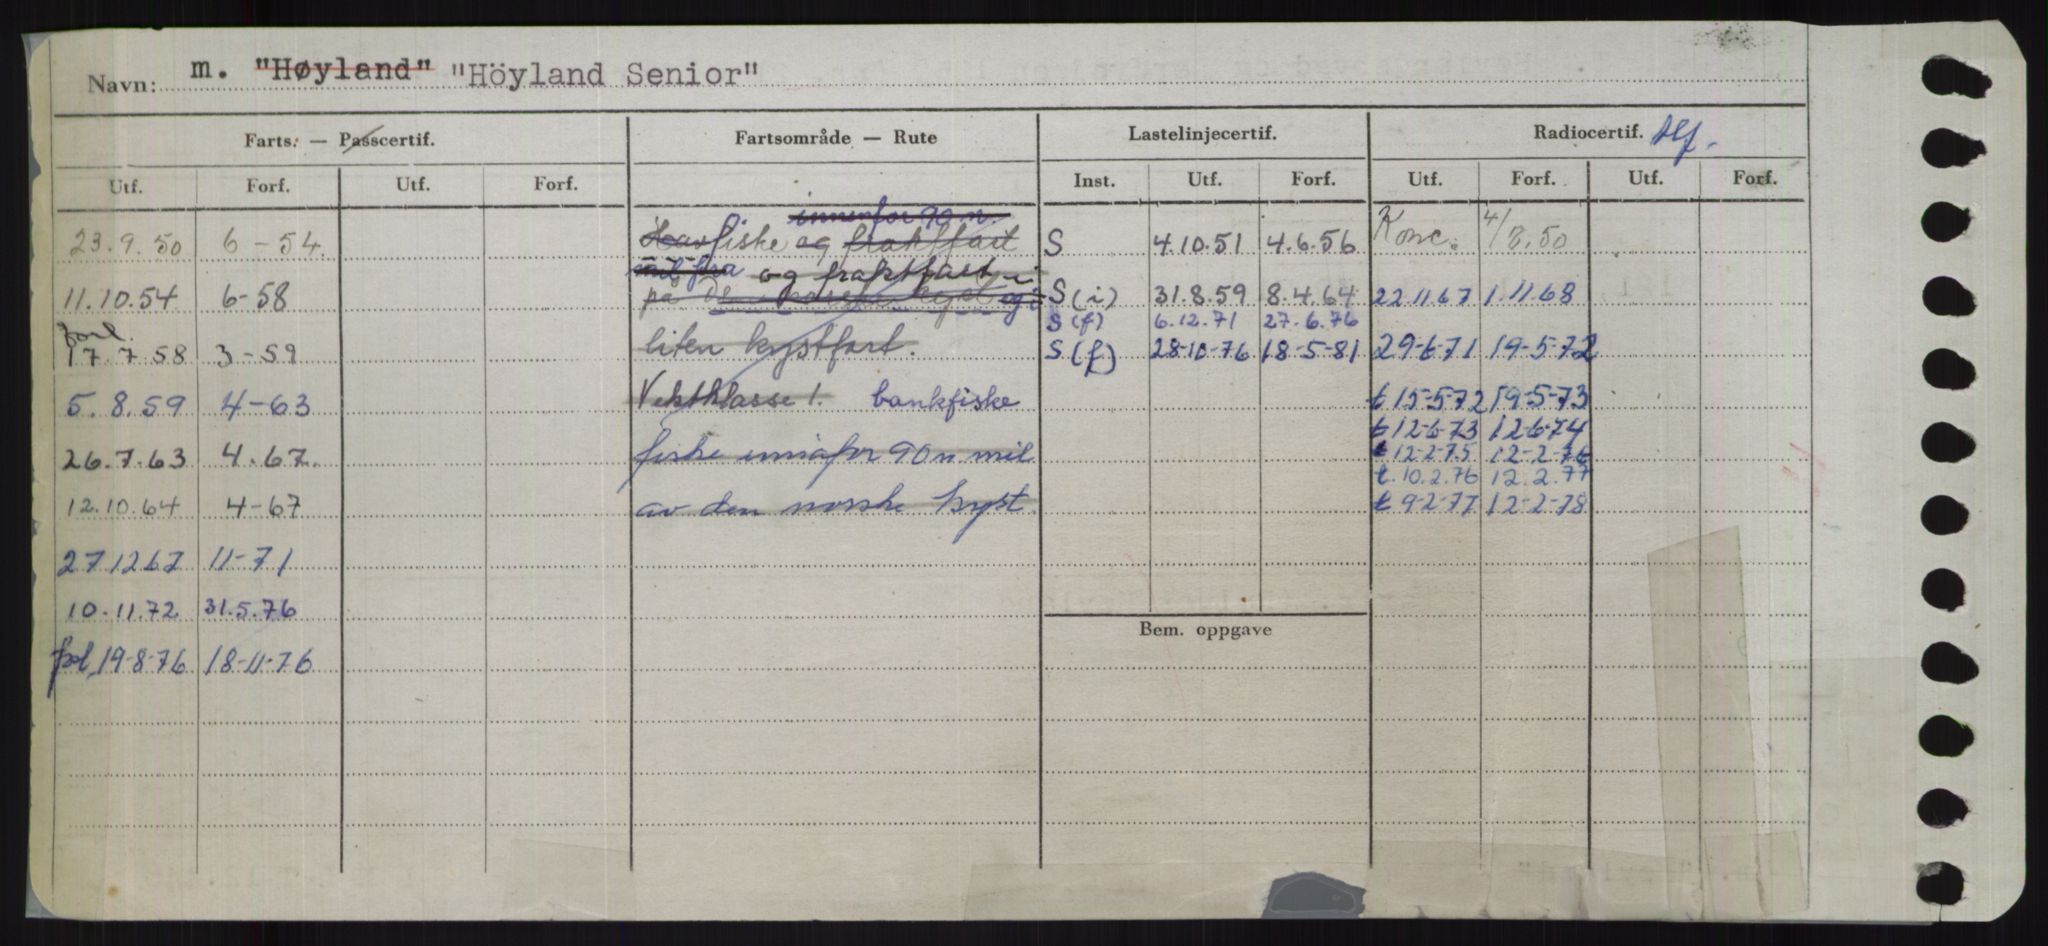 Navn: m. "Høyland" "Höyland Senior"
Farts. — Passcertif. Fartsområde — Rute Lastelinjecertif. Radiocertif. tlf.
Utf. Forf. Utf. Forf. Inst. Utf. Forf. Utf. Forf. Utf. Forf.
innenfor 90 n.
23.9.50 6-54. Havfiske og fraktfart S 4.10.51 4.6.56 Konc. 4/8.50
mil fra og fraktfart i
11.10.54 6-58 på norske kyst og i S (i) 31.8.59 8.4.64 22 11 67 1 11 68
forl. S (f) 6.12.71 27.6.76
17.7.58 3-59 liten kystfart. S (f) 28-10-76 18-5-81 29-6-71 19-5-72
5.8.59 4-63 Vektklasse 1. bankfiske t 15-5-72 19-5-73
t 12-6-73 12-6-74
26.7.63 4.67. fiske innafor 90 n mil t 12-2-75 12-2-76
t. 10.2.76 12.2.77
12.10.64 4-67 av den norske kyst t 9-2-77 12-2-78
27 12 67 11-71
10.11.72 31.5.76
Bem. oppgave
forl. 19-8-76 18-11-76